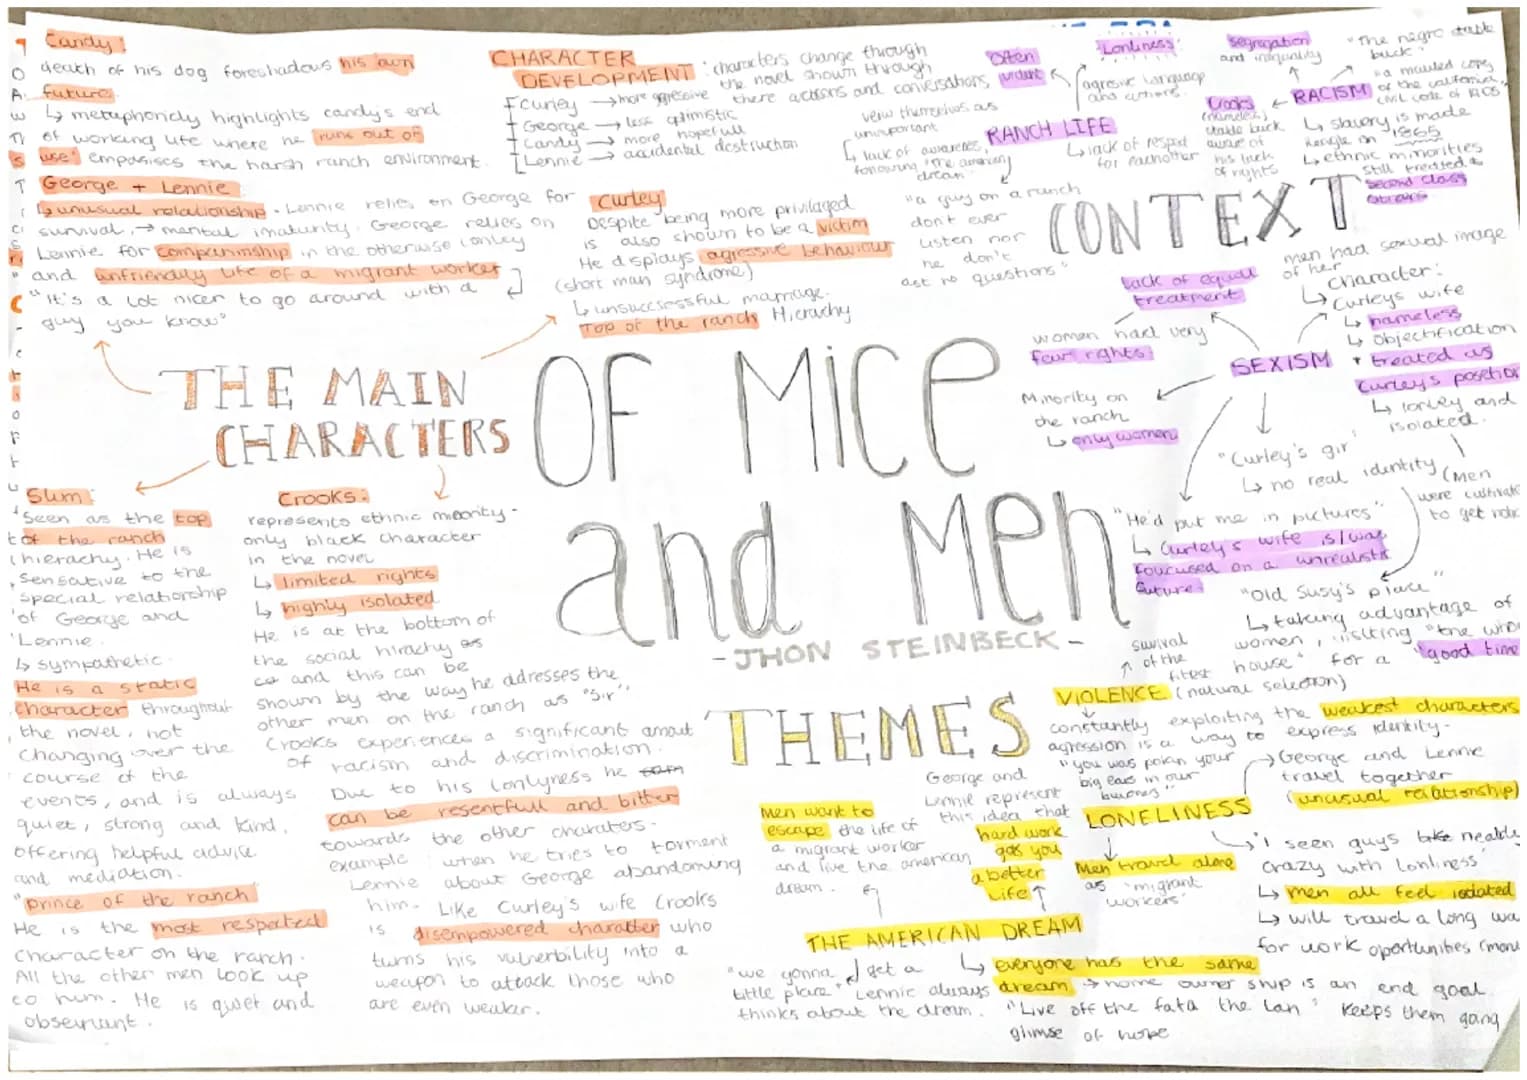 Candy:
death of his dog foreshadows his own
future
↳ metaphoricly highlights candy's end
of working life where he 'runs out of
use' empasises the harsh ranch environment.
George + Lennie
↳ unusual relationship. Lennie relies on George for
survival, → mental imaturity. George relies on
Lennie for companionship in the otherwise lonley
and unfriendly life of a migrant worker
"It's a lot nicer to go around with a
guy you know"
CHARACTER
DEVELOPMENT : characters change through
the novel shown through
there actions and conversations,
Curley → more aggressive
George → less optimistic
Candy → more hopefull
Lennie → accidental destruction
Curley
Despite being more privilaged
is also shown to be a victim
He displays agressive behaviour
(short man syndrome)
↳ unsuccsessful marriage.
Top of the ranch Hierachy
THE MAIN
CHARACTERS
OF MiCe
and Men
- JHON STEINBECK -
CONTEXT
RANCH LIFE
Often
violent
Lonliness
agresive language
and actions.
view themselves as
unimportant
↳ lack of awareness,
following "the american
dream"
↳ lack of respect
for eachother
"a guy on a ranch
don't ever
listen nor
he don't
ast no questions"
RACISM
segregation
and inequality
"The negro stable
buck"
"a mauled copy
of the california
civil code of 1905"
Crooks
(nameless)
stable buck
aware of
his lack
of rights
↳ slavery is made
illegle in 1865
↳ ethnic minorities
still treated as
second class
SEXISM
lack of equall
treatment
women had very
few rights
Minority on
the ranch
↳ only women
men had sexual image
of her
Character:
↳ Curleys wife
↳ nameless
↳ objectification
+ treated as
Curley's
↳ lonley and
isolated.
"Curley's girl"
↳ no real identity
(Men
were
to get
"He'd put me in pictures"
↳ Curley's wife is/was
foucused on a unrealistic
future.
"Old Susy's place"
↳ taking advantage of
women, visiting "the
house" for a "good time
Slim:
Seen as the top
of the ranch
hierachy. He is
sensative to the
special relationship
of George and
Lennie.
↳ sympathetic.
He is a static
character throughout
the novel, not
changing over the
course of the
events, and is always
quiet, strong and kind,
offering helpful advice
and mediation.
"prince of the ranch"
He is the most respected
character on the ranch.
All the other men look up
to him. He is quiet and
observant.
Crooks:
represents ethnic minority-
only black character
in the novel
↳ limited rights
↳ highly isolated
He is at the bottom of
the social hirachy as
and this can be
shown by the way he adresses the
other men on the ranch as "Sir".
Crooks experiences a significant amout
of racism and discrimination.
Due to his lonlyness he
can be resentfull and bitter
towards the other charaters.
example : when he tries to torment
Lennie about George abandoming
him. Like Curley's wife Crooks
is disempowered charatter who
turns his vulnerbility into a
weapon to attack those who
are even weaker.
THEMES
VIOLENCE (natural selection)
survival
of the
fittest
constantly exploiting the weakest characters
agression is a way to express identity-
"you was pokin your
big ears in our
LONELINESS
George and Lennie
travel together
(unusual relationship)
Men travel alone
as 'migrant
workers'
'i seen guys neably
crazy with lonliness'
↳ men all feel isolated
↳ will travel a long
for work oportunities
THE AMERICAN DREAM
Men want to
escape the life of
a migrant worker
and live the american
dream.
George and
Lennie represent
this idea that
hard work
gets you
a better
life
"we gonna get a
little place" Lennie always
thinks about the dream.
↳ everyone has the same
dream → home owner ship is an end goal
"Live off the fata the lan" keeps them gang
glimse of hope